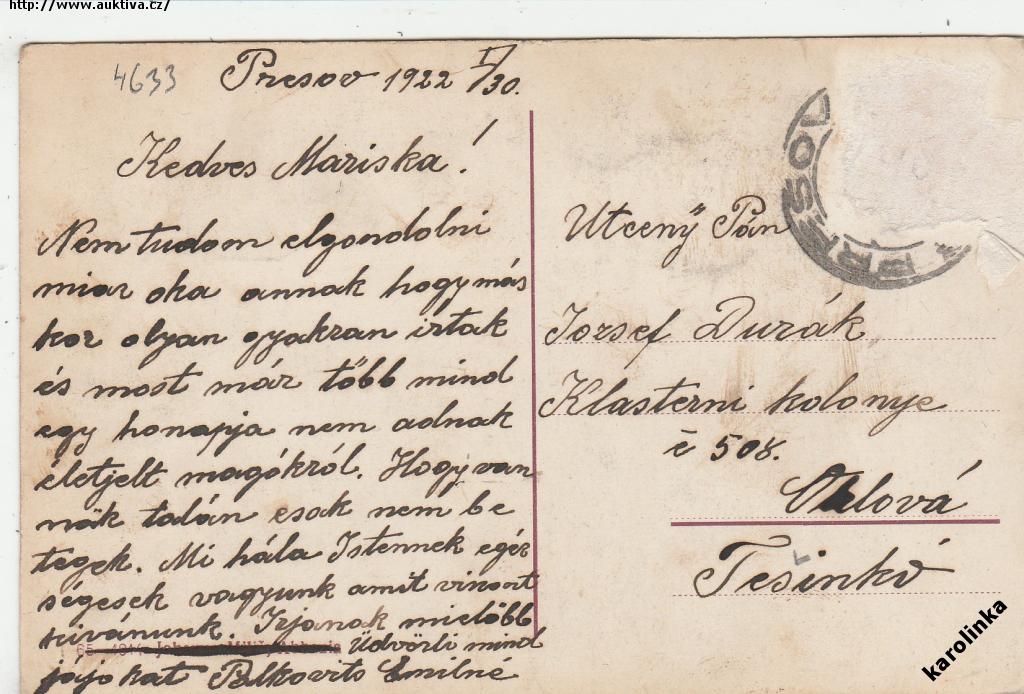 http://www.auktiva.cz/
4633
Presov 1922 I/30.
Kedves Mariska!
Nem tudom elgondolni
miar oka annak hogy más
kor olyan gyakran irtak
és most már több mind
egy honapja nem adnak
életjelt magókról. Hogy van
nák talán csak nem be
tegek. Mi hála Istennek egés
ségesek vagyunk amit viszont
kivánunk. Irjanak mielőbb
Üdvözli mind
jájokat Palkovits Emilné
PRESOV
Utcený Pán
Iozsef Durák
Klasterni kolonye
č 508.
Orlová
Tešinkó
karolinka